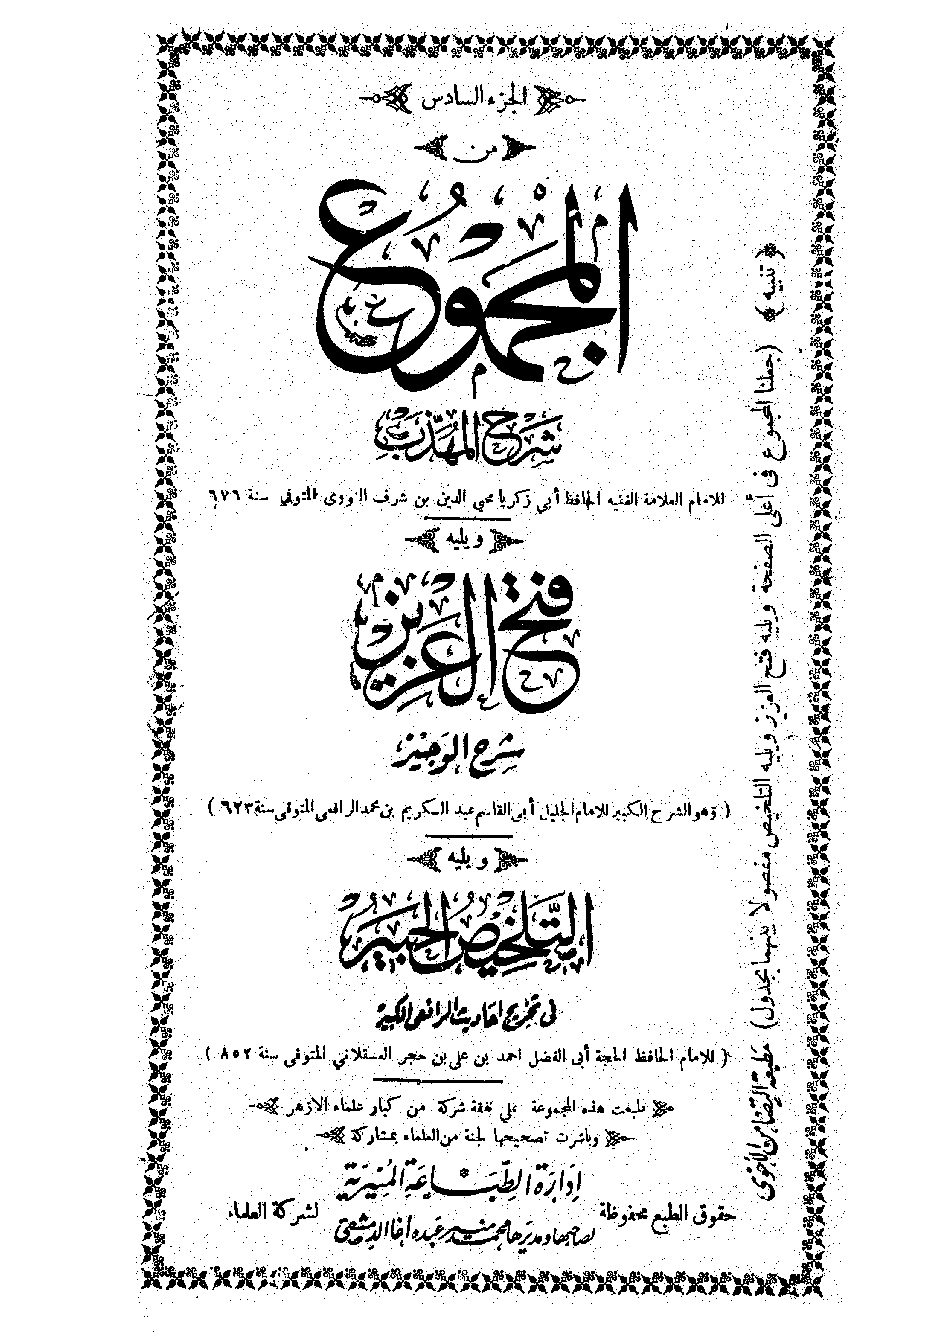 الجزء السادس
من
المجموع
شرح المهذب
للامام العلامة الفقيه الحافظ أبي زكريا محيي الدين بن شرف النووى المتوفي سنة ٦٧٦
ويليه
فتح العزيز
شرح الوجيز
( وهو الشرح الكبير للامام الجليل أبي القاسم عبد الكريم بن محمد الرافعي المتوفى سنة ٦٢٣ )
ويليه
التلخيص الحبير
فى تخريج احاديث الرافعي الكبير
( للامام الحافظ الحجة أبى الفضل احمد بن على بن حجر العسقلاني المتوفى سنة ٨٥٢ )
طبعت هذه المجموعة على نفقة شركة من كبار علماء الازهر
وباشرت تصحيحها لجنة من العلماء بمشاركة
إدارة الطباعة المنيرية
لصاحبها ومديرها محمد منير عبده أغا الدمشقى
حقوق الطبع محفوظة لشركة العلماء
( تنبيه ) (جعلنا المجموع فى أعلى الصفحة ويليه فتح العزيز ويليه التلخيص مفصولا بينهما بجدول)
مطبعة التضامن الأخوى